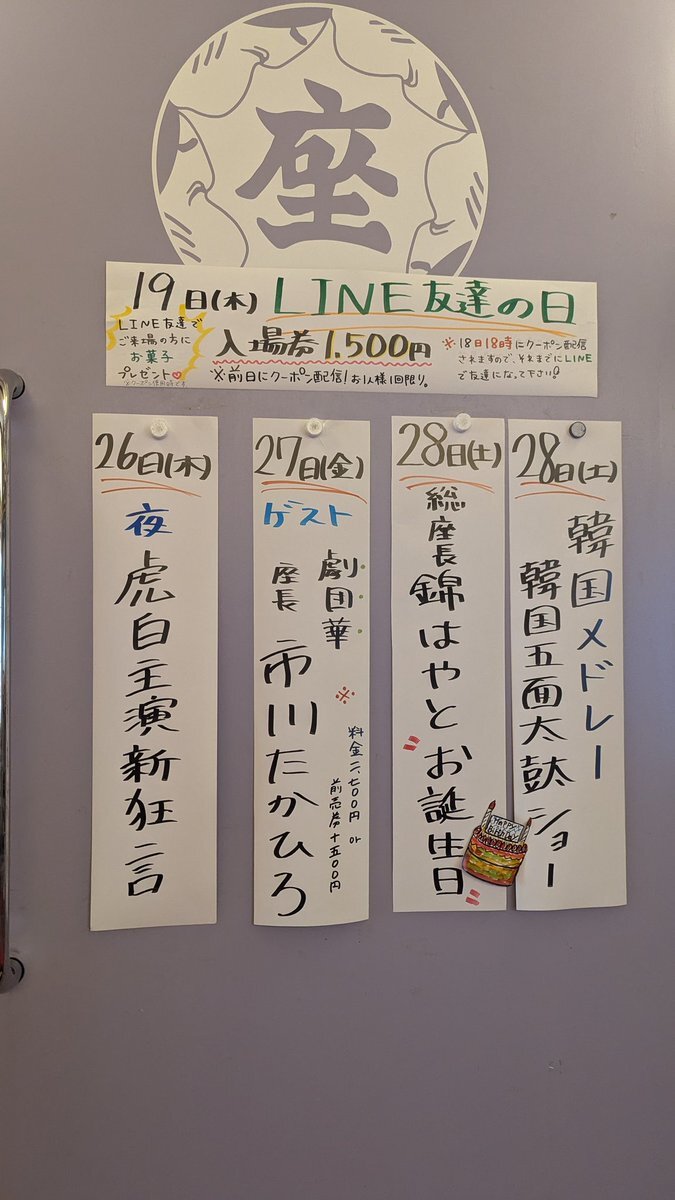 座
19日(木) LINE友達の日
LINE友達で
ご来場の方に
お菓子
プレゼント♡
※クーポン使用時です
入場券1.500円
※前日にクーポン配信!お1人様1回限り。
※18日18時にクーポン配信
されますので、それまでにLINE
で友達になって下さい!
26日(木)
夜
虎白主演新狂言
27日(金)
ゲスト
劇団華
座長 市川たかひろ
※料金二、七00円 or
前売券+五00円
28日(土)
総座長錦はやと"お誕生日"
HAPPY
BIRTHDAY
28日(土)
韓国メドレー
韓国五面太鼓ショー